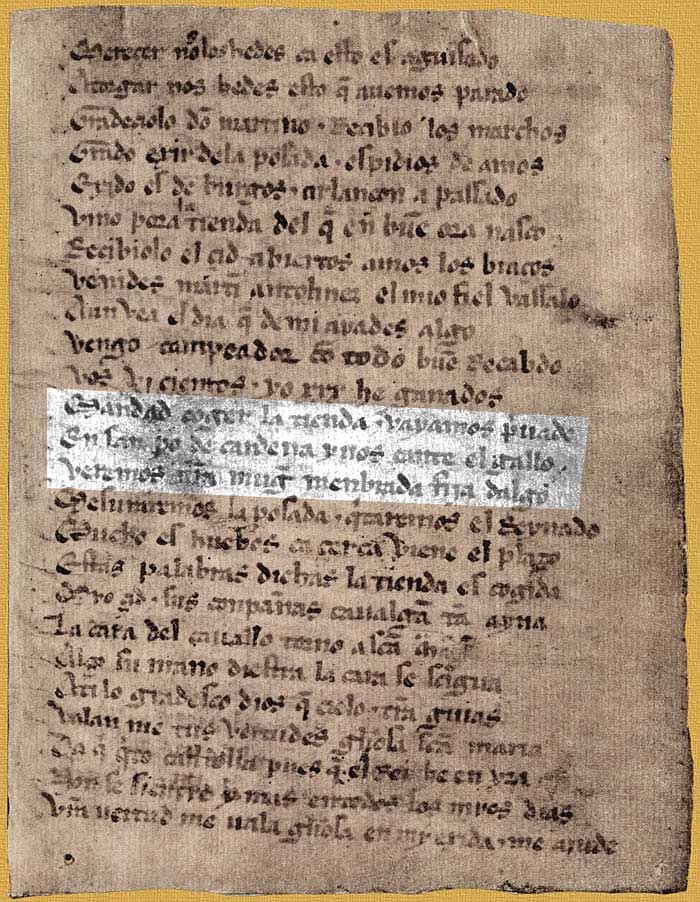 Merecer nolos hedes ca esto es aguisado
Atorgar nos hedes esto q̄ auemos parado
Gradeciolo dō martino · Recibio los marchos
Grado exir dela posada · espidios de amos
Exido es de burgos · arlancon a passado
Vino pora la tienda del q̄ en buē ora nasco
Recibiolo el çid abiertos amos los braços
Venides martī antolinez el mio fiel vassalo
Aun vea el dia q̄ de mi ayades algo
Vengo campeador cō todo buē Recabdo
Vos vi cientos · yo xxx he ganados
Mandad coger la tienda · vayamos priuado
En san po de cardena ynos cante el gallo
Veremos ur̄a mugr̄ menbrada fija dalgo
Mesuraremos la posada · q̄taremos el Reynado
Mucho es huebos ca cerca viene el plazo
Estas palabras dichas la tienda es cogida
Myo çid · sus conpañas caualgā tā ayna
La cara del cauallo torno a scā mar̄
Alço su mano diestra la cara se sātigua
Ati lo gradesco dios q̄ cielo · tr̄ra guias
Valan me tus vertudes gl̄iosa scā maria
Da q̄ q̄to castiella pues q̄ el Rei he en yra
Non se si entrare y mas en todos los myos dias
Vr̄a uertud me uala gl̄iosa en my exida · me aiude